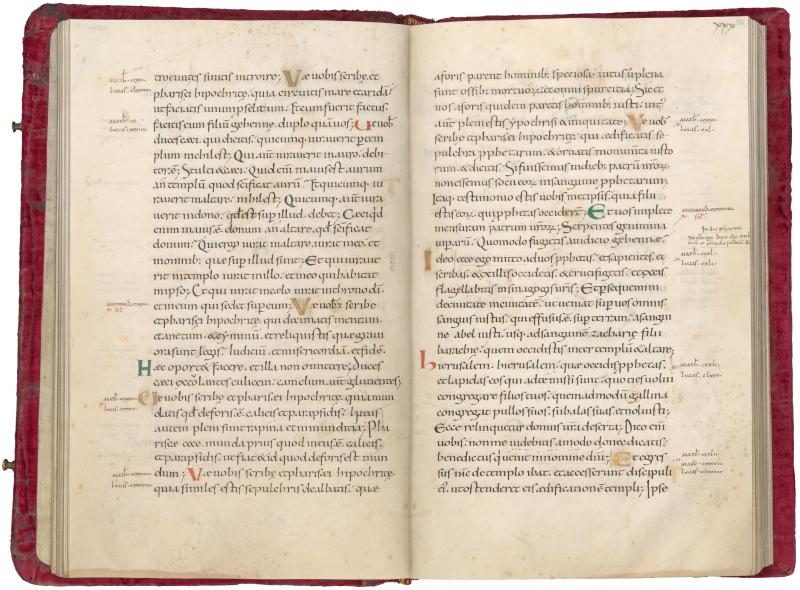 trocuntes sinitis introire; Vae vobis scribę et
pharisei hipochritę. quia circuitis mare et aridã
ut faciatis unum pselitum. Et cum fuerit factus.
facitis eum filiũ gehennę. duplo quã vos; Uę vob
duces cęci. qui dicitis. quicumq; iuraverit p tem
plum nihil est; Qui aut̃ iuraverit in auro. debi
tor ẽ; Stulti & cęci. Quid enim maius est aurum
an templũ quod sc̃ificat aurũ; Et quicumq; iu
raverit in altare. nihil est; Quicumq; aut̃ iura
verit in dono. qd̃ est sup illud. debet; Ceci qd̃
enim maius est. donum. an altare. qd̃ sc̃ificat
donum; Qui ergo iurat in altare. iurat in eo. et
in omnib; quę sup illud sunt; Et qui iurave
rit in templo. iurat in illo. et in eo qui habitat
in ipso; Et qui iurat in celo. iurat in throno dī.
et in eum qui sedet sup eum; Vae vob; scribę
et pharisei hipochritę. qui decimatis mentam.
et anetum. & cyminũ. et reliquistis quę gravi
ora sunt legis. Iudiciũ. et misericordiã. et fidẽ.
Hęc oportet facere. et illa non omittere; Duces
cęci excolantes culicem. camelum aut̃ glutientes;
Vę vobis scribę et pharisei hipochritę. quia mun
datis qd̃ deforis ẽ. calicis et parapsidis. Intus
autem pleni sunt rapina et immunditia; Pha
riseę cece. munda prius quod intus ẽ. calicis.
et parapsidis. ut fiat & id quod deforis est mun
dum; Vę vobis scribę et pharisei hipochritę.
quia similes estis sepulchris dealbatis. quę
xxx
aforis parent hominib; speciosa. intus ũ plena
sunt ossib; mortuorũ. et omni spurcitia; Sic et
vos aforis quidem paretis hominib; iusti. int;
aut̃ pleni estis ypochrisi & iniquitate; Vę vobis
scribę et pharisei hipochritę. qui ędificatis se
pulchra pphetarum. & ornatis monumẽta iusto
rum. & dicitis. Si fuissemus in dieb; patrũ nr̃orũ.
non essemus socii eorũ in sanguine pphetarum;
Itaq; testimonio estis vobis metipsis. quia filii
estis eorũ. qui pphetas occiderunt; Et vos implete
mensuram patrum vr̃orũ; Serpentes genimina
viparũ. Quomodo fugietis a iudicio gehennę;
Ideo ecce ego mitto ad vos pphetas. et sapientes. et
scribas. & ex illis occidetis. & crucifigetis. et ex eis
flagellabitis in sinagogis vr̃is; Et p̃sequemini
de civitate in civitatẽ. ut veniat sup vos omnis
sanguis iustus. qui effusus ẽ. sup terram. a sangui
ne abel iusti. usq; ad sanguinẽ zacharię filii
barachię. quem occidistis inter templũ & altare;
hierusalem. hierusalem. quę occidis pphetas.
et lapidas eos qui ad te missi sunt. quotiens volui
congregare filios tuos. quemadmodũ gallina
congregat pullos suos. sub alas suas. et noluisti;
Ecce relinquetur domus vr̃a deserta; Dico enĩ
vobis. non me videbitis amodo. donec dicatis.
benedictus qui venit in nomine dñi; Et egres
sus ihc̃ de templo ibat. et accesserunt discipuli
ei;. ut ostenderet eis. ędificationẽ templi; Ipse